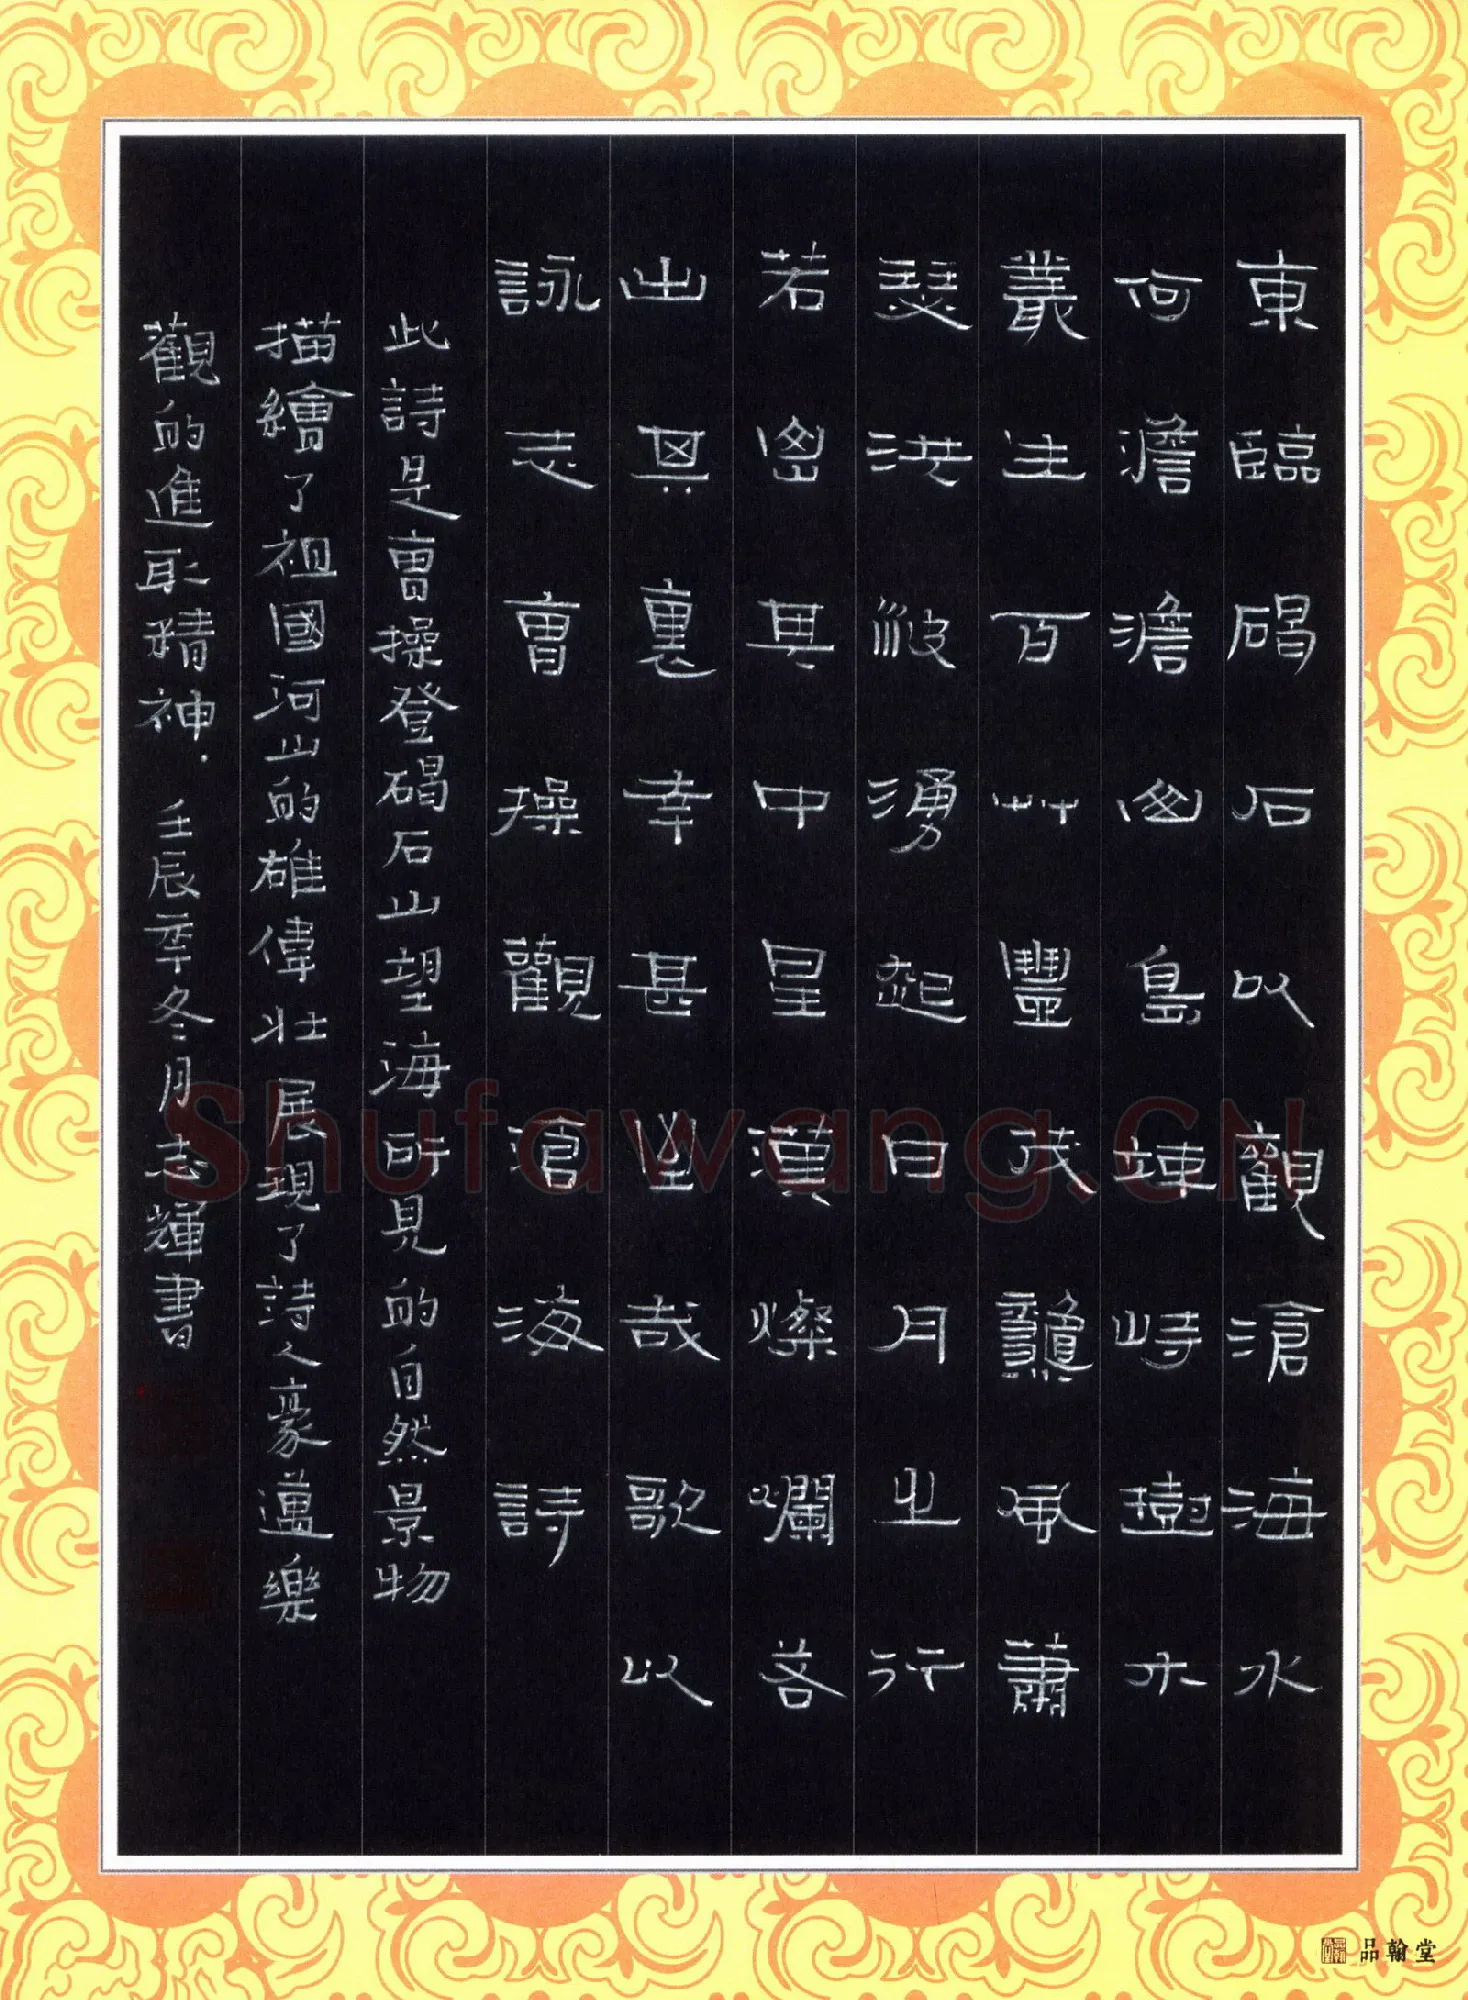 東臨碣石以觀滄海水
何澹澹山島竦峙樹木
叢生百艸豐茂秋風蕭
瑟洪波湧起日月之行
若出其中星漢燦爛若
出其裏幸甚至哉歌以
詠志曹操觀滄海詩
此詩是曹操登碣石山望海所見的自然景物
描繪了祖國河山的雄偉壯展現了詩人豪邁樂
觀的進取精神.壬辰年冬月志輝書
Shufawang.CN
品翰堂